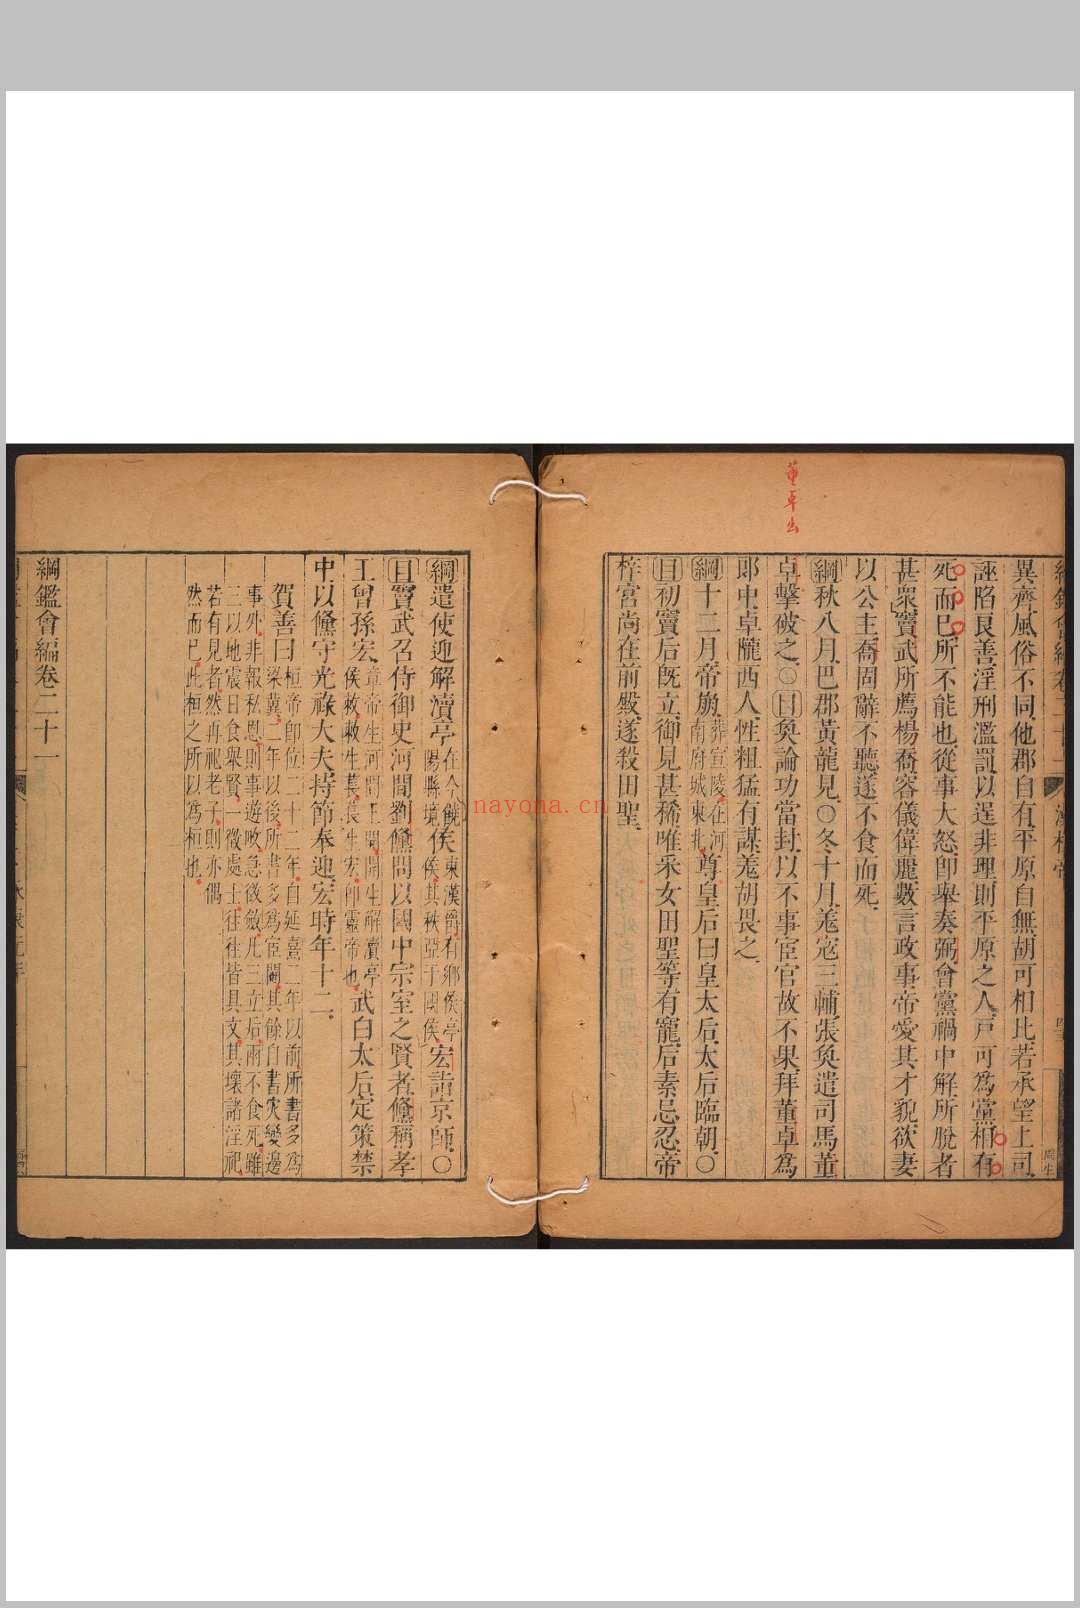 董卓出
異齊風俗不同他郡自有平原自無胡可相比若承望上司
誣陷良善淫刑濫罰以逞非理則平原之人戸可爲黨相有
死而已所不能也從事大怒卽舉奏弼會黨禍中解所脫者
甚衆竇武所薦楊喬容儀偉麗數言政事帝愛其才貌欲妻
以公主喬固辭不聽遂不食而死
綱秋八月巴郡黃龍見○冬十月羗寇三輔張奐遣司馬董
卓擊破之○目奐論功當封以不事宦官故不果拜董卓爲
郎中卓隴西人性粗猛有謀羗胡畏之
綱十二月帝崩葬宣陵在河南府城東北尊皇后曰皇太后太后臨朝○
目初竇后旣立御見甚稀唯采女田聖等有寵后素忌忍帝
梓宮尚在前殿遂殺田聖
綱遣使迎解瀆亭在今饒陽縣境侯東漢爵有鄉侯亭侯其秩亞于國侯宏詣京師○
目竇武召侍御史河間劉儵問以國中宗室之賢者儵稱孝
王曾孫宏章帝生河間王開開生解瀆亭侯淑淑生萇萇生宏卽靈帝也武白太后定策禁
中以儵守光祿大夫持節奉迎宏時年十二
賀善曰桓帝卽位二十二年自延熹二年以前所書多爲
梁冀二年以後所書多爲宦閹其餘自書灾變邊
事外非報私恩則事遊畋急徵斂凡三立后兩不食死雖
三以地震日食舉賢一徵處士往往皆具文其壞諸淫祀
若有見者然再祀老子則亦偶
然而已此桓之所以爲桓也
綱鑑會編卷二十一
nayona.cn